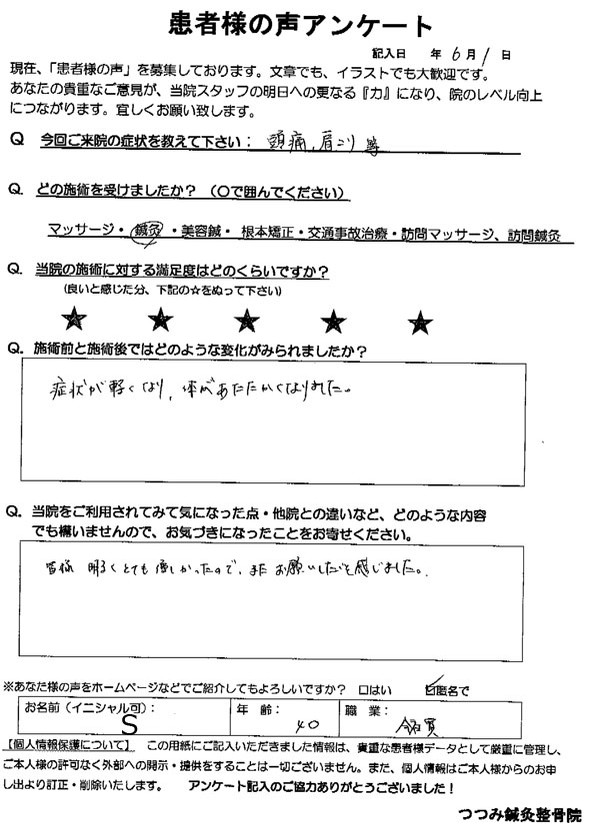 患者様の声アンケート
記入日 年 6月 1日
現在、「患者様の声」を募集しております。文章でも、イラストでも大歓迎です。
あなたの貴重なご意見が、当院スタッフの明日への更なる『力』になり、院のレベル向上
につながります。宜しくお願い致します。
Q 今回ご来院の症状を教えて下さい: 頭痛,肩こり等
Q. どの施術を受けましたか? (○で囲んでください)
マッサージ・鍼灸・美容鍼・根本矯正・交通事故治療・訪問マッサージ、訪問鍼灸
Q. 当院の施術に対する満足度はどのくらいですか?
(良いと感じた分、下記の☆をぬって下さい)
★ ★ ★ ★ ★
Q. 施術前と施術後ではどのような変化がみられましたか?
症状が軽くなり,体があたたかくなりました。
Q. 当院をご利用されてみて気になった点・他院との違いなど、どのような内容
でも構いませんので、お気づきになったことをお寄せください。
皆様 明るくとても優しかったので、またお願いしたいと感じました。
※あなた様の声をホームページなどでご紹介してもよろしいですか? □はい ☑匿名で
お名前(イニシャル可): S 年 齢: 40 職 業:
【個人情報保護について】 この用紙にご記入いただきました情報は、貴重な患者様データとして厳重に管理し、
ご本人様の許可なく外部への開示・提供をすることは一切ございません。また、個人情報はご本人様からのお申
し出より訂正・削除いたします。 アンケート記入のご協力ありがとうございました!
つつみ鍼灸整骨院